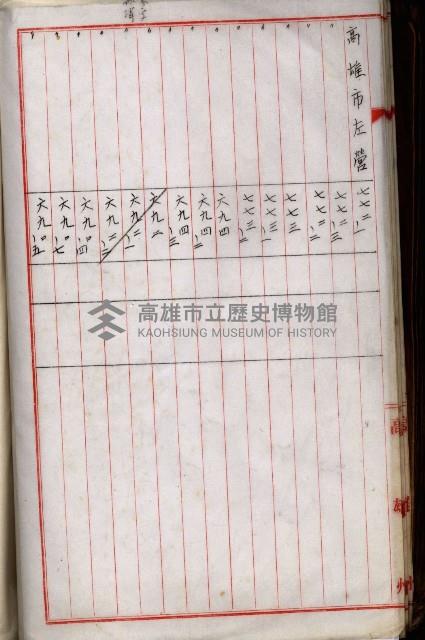 高雄市左營
七七二ノ一
七七二ノ三
七七二ノ二
七七三
七七三ノ一
七七三ノ二
六九四
六九四ノ二
六九四ノ三
六九二
六九二ノ一
六九二ノ三
六九ノ四
六九ノ七
六九ノ五
高雄州
高雄市立歷史博物館
KAOHSIUNG MUSEUM OF HISTORY